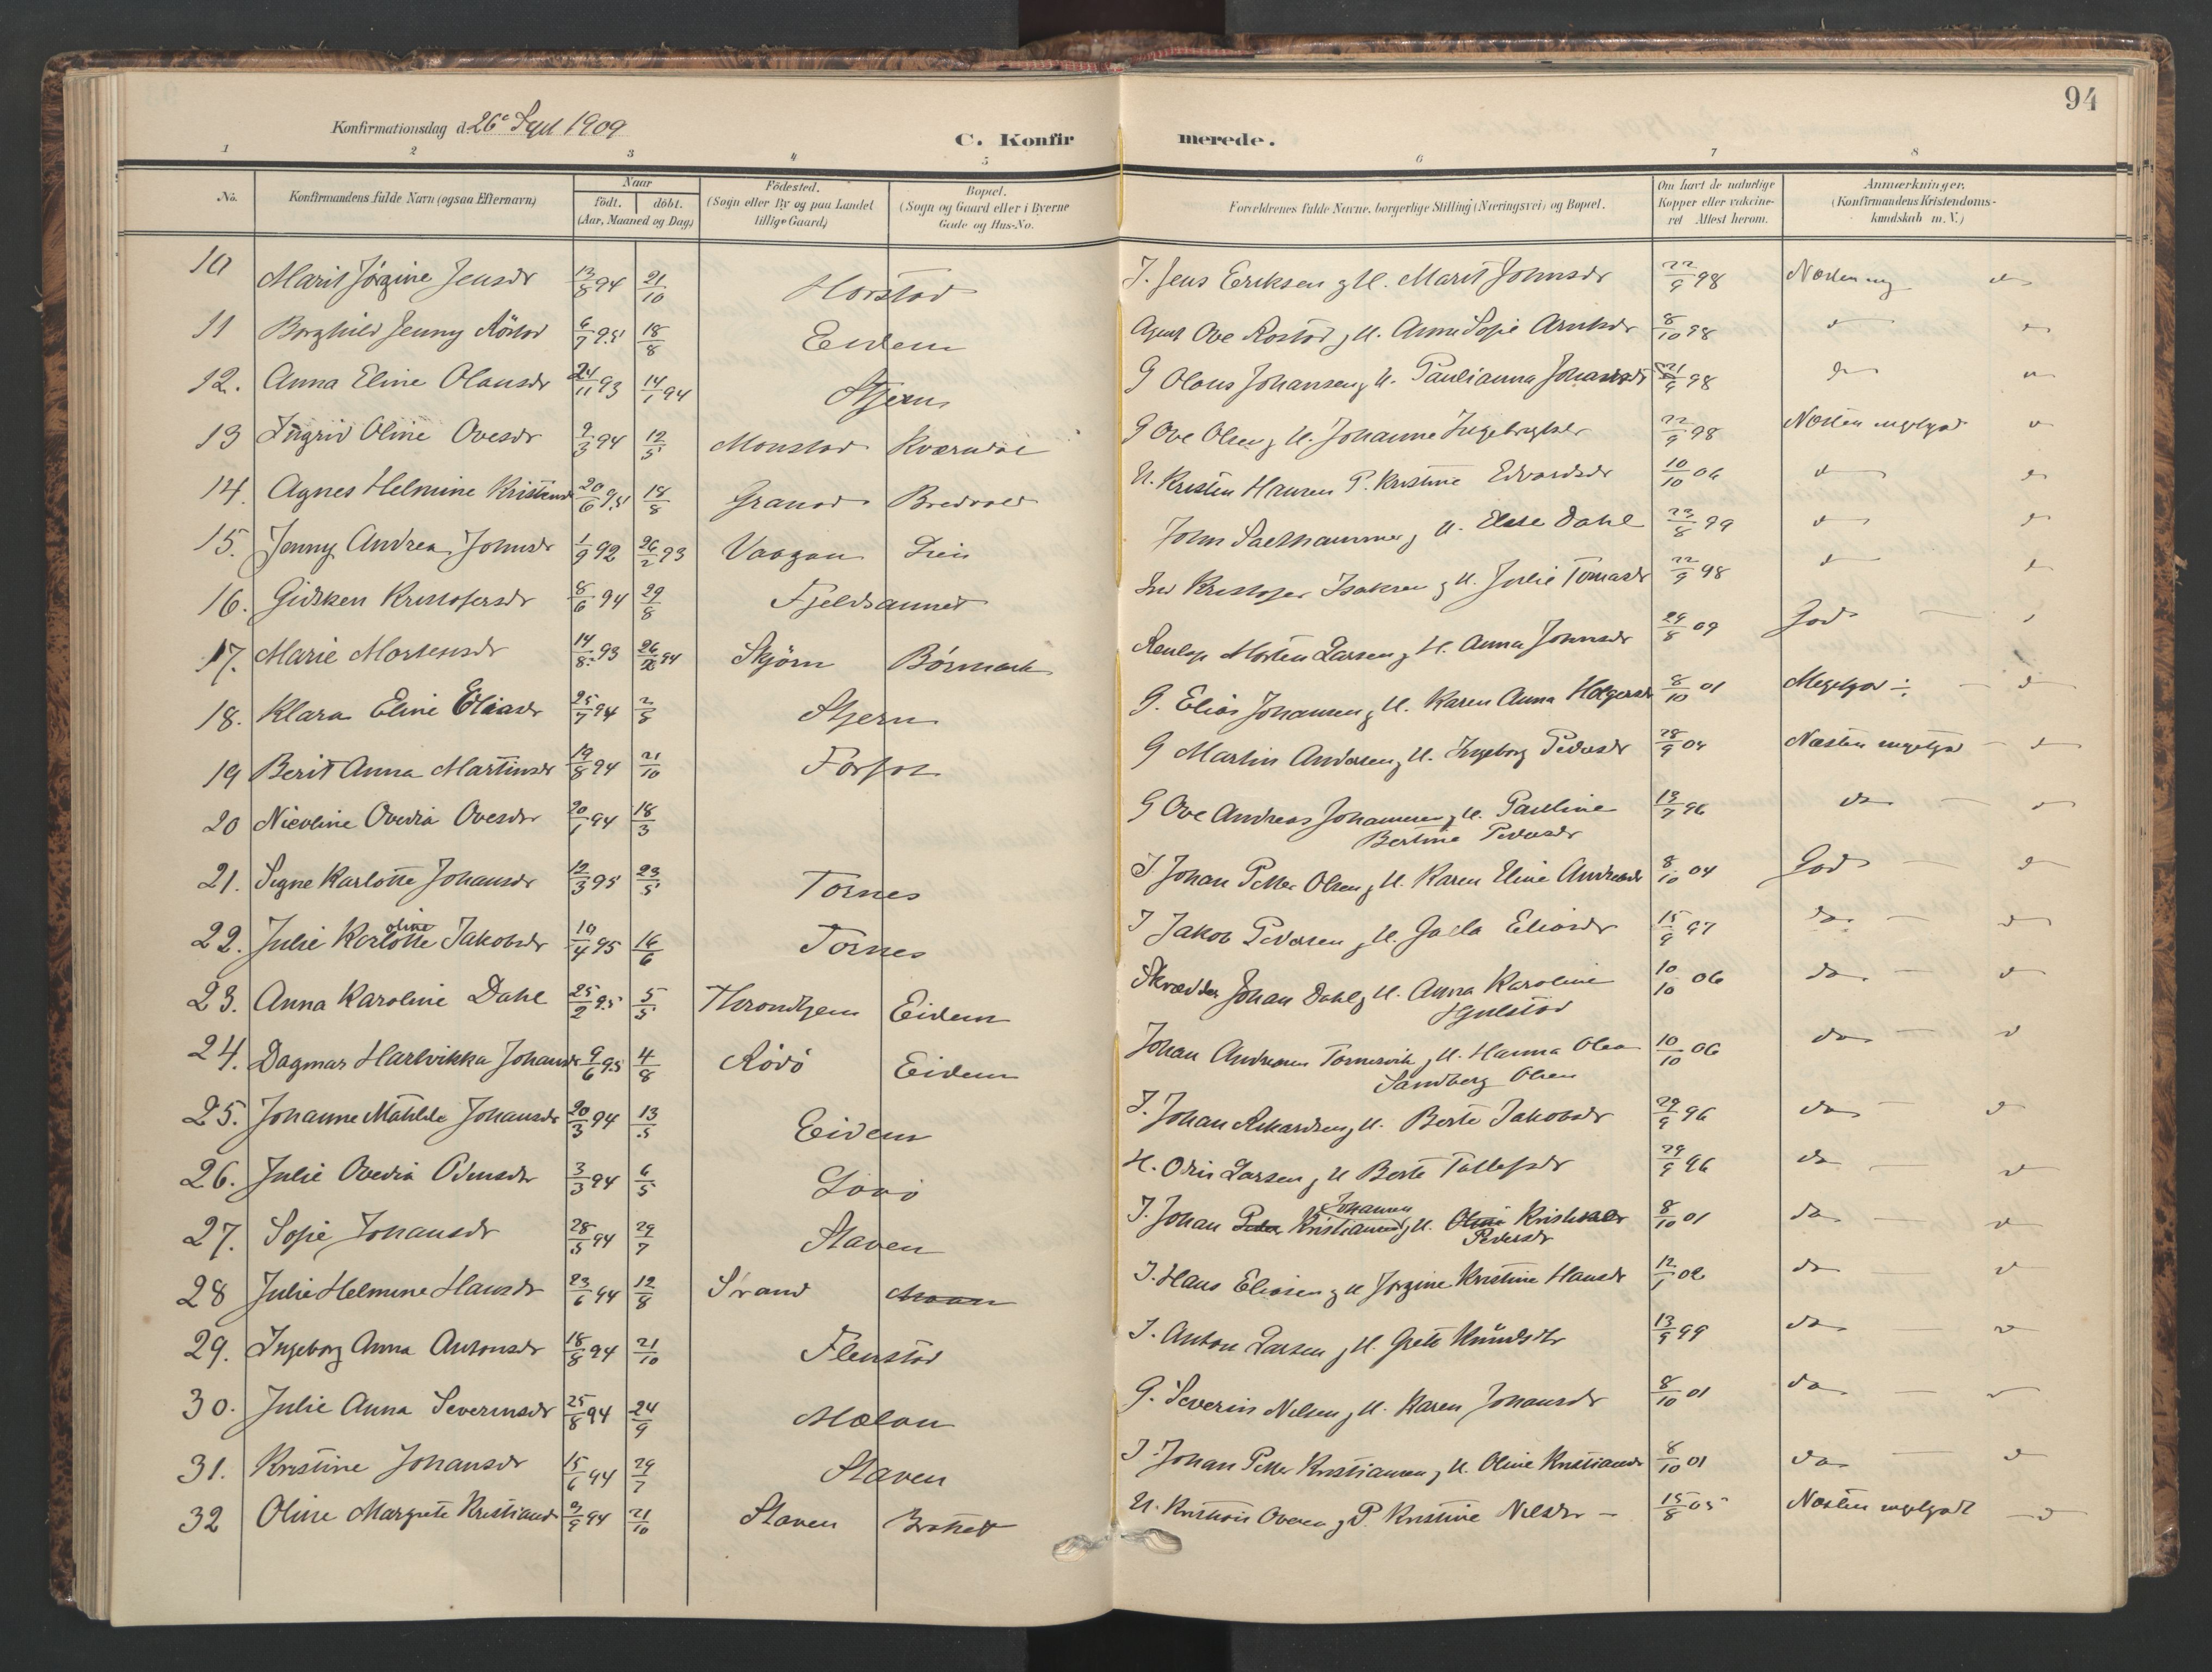 94
Konfirmationsdag d. 26e Sept 1909
C. Konfirmerede.
1 2 3 4 5 6 7 8
No. Konfirmandens fulde Navn (ogsaa Efternavn) Naar födt. döbt. (Aar, Maaned og Dag) Födested. (Sogn eller By og paa Landet tillige Gaard) Bopæl. (Sogn og Gaard eller i Byerne Gade og Hus-No. Forældrenes fulde Navne, borgerlige Stilling (Næringsvei) og Bopæl. Om havt de naturlige Kopper eller vakcineret Attest herom. Anmærkninger. (Konfirmandens Kristendomskundskab m. V.)
10 Marit Jørgine Jensdr 13/8 94 21/10 Horstad J. Jens Eriksen og H. Marit Johnsdr 22/9 98
11 Borghild Jenny Röstad 6/7 95 18/8 Eidem Agent Ove Rostad og H. Anna Sofie Arntsdr 8/10 98
12. Anna Eline Olausdr 24/11 93 14/1 94 Stjern G Olaus Johansen og H. Paulianna Johansdr 21/9 98 do
13 Ingrid Oline Ovesdr 9/3 94 12/5 Monstad G Ove Olsen og H. Johanne Ingebrigtsdr 22/9 98 Næsten megetgod
14. Agnes Helmine Kristensd 20/6 95 18/8 Granad Bredvold U. Kristen Hansen P. Kristine Edvardsdr 10/10 06
15. Jenny Andrea Johnsdr 1/9 92 26/2 93 Vaagan John Saethammer og H. Else Dahl 23/8 99
16. Gidsken Kristofersdr 8/6 94 29/8 Fjeldsaunet Ind Kristofer Isaksen og H. Julie Tomasdr 22/9 98
17. Marie Mortensdr 14/8 93 94 Skjörn Börmark Morten Larsen og H. Anna Johnsdr 24/8 09 God
18. Klara Eline Eliasdr 25/7 94 2/5 Stjern G. Elias Johansen og H. Karen Anna Holgersdr 8/10 01 Megetgod ÷
19 Berit Anna Martinsdr 19/8 94 21/10 Forfot G Martin Andersen og H. Ingeborg Pedersdr 28/9 04 Næsten megetgod
20 Nicoline Ovedia Ovesdr 20/1 94 18/3 G Ove Andreas Johannesen og H. Pauline Bertine Pedersdr 13/7 96 do
21. Signe Karlotte Johansdr 12/3 95 23/5 Tornes J Johan Petter Olsen og H. Karen Eline Andreasdr 8/10 04 God
22. Julie Karlotte oline Jakobsdr 19/4 95 16/6 Tornes J Jakob Pedersen og H. Eliasdr 15/9 97 do
23. Anna Karoline Dahl 25/2 95 5/5 Throndhjem Eidem Skrædder Johan Dahl og H. Anna Karoline 10/10 06 do
24. Dagmar Hartvikka Johansdr 9/6 95 4/8 Rödö Eidem Johan Andreasen Tornesvik og H. Hanna Olea Sandberg Olsen 10/10 06 do
25. Johanne Mathilde Johansdr 20/3 94 13/5 Eidem J. Johan Rikardsen og H. Berte Jakobsdr 29/9 96 do
26. Julie Ovedia Odinsdr 3/3 94 6/5 H. Odin Larsen og H Berte Tollefsdr 29/9 96 do
27. Sofie Johansdr 28/5 94 29/7 Staven J. Johan Peder Kristiansen Johansen og H. Oline Kristiansdr Pedersdr 8/10 01 do
28 Julie Helmine Hansdr 23/6 94 12/8 Strand J. Hans Eliasen og H Jørgine Kristine Hansdr 12/1 06 do
29. Ingeborg Anna Antonsdr 18/8 94 21/10 Flenstad J. Anton Larsen og H. Grete Knudsdtr 13/9 99 do
30. Julie Anna Severinsdr 25/8 94 24/9 Mælan G. Severin Nilsen og H. Karen Johansdr 8/10 01 do
31. Kristine Johansdr 15/6 94 29/7 Staven J. Johan Petter Kristiansen og H. Oline Kristiansdr 8/10 01 do
32 Oline Margrete Kristiansdr 9/9 94 21/10 Staven U. Kristian Ovesen og P. Kristine Nilsdr 15/8 05 Næsten megetgodt